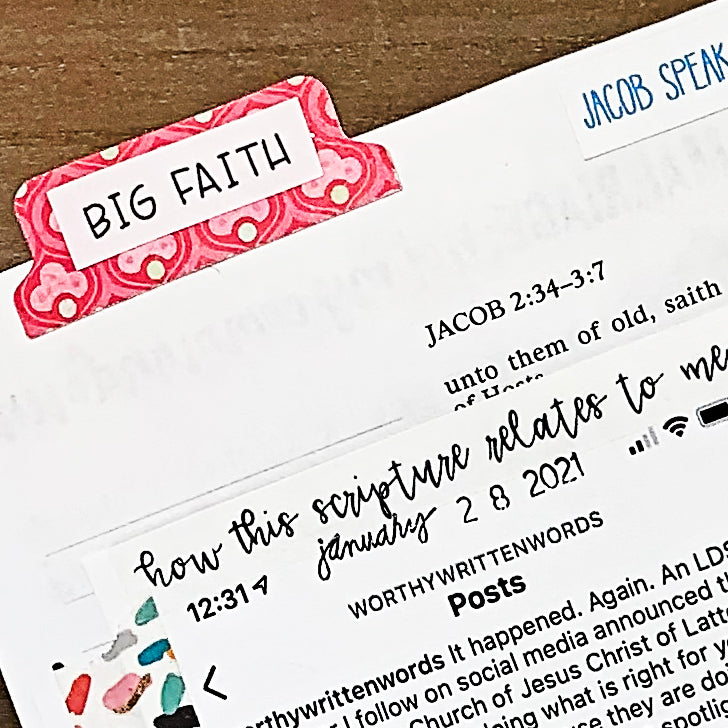 BIG FAITH
JACOB SPEAK
JACOB 2:34–3:7
unto them of old, saith
of Hosts
how this scripture relates to me
january 28 2021
12:31
WORTHYWRITTENWORDS
Posts
rthywrittenwords It happened. Again. An LDS
I follow on social media announced t
Church of Jesus Christ of Latt
doing what is right for y
use they are do
spotli